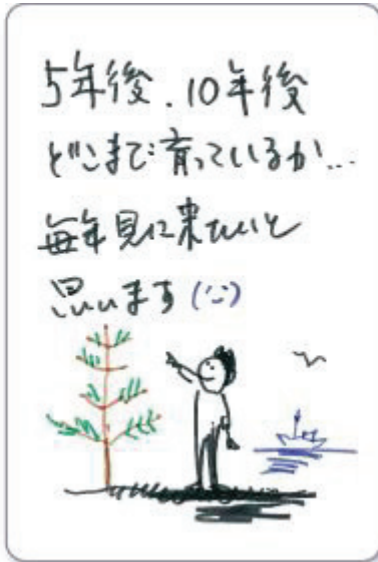 5年後、10年後
どこまで育っているか...
毎年見に来たいと
思います(ﾟ-ﾟ)